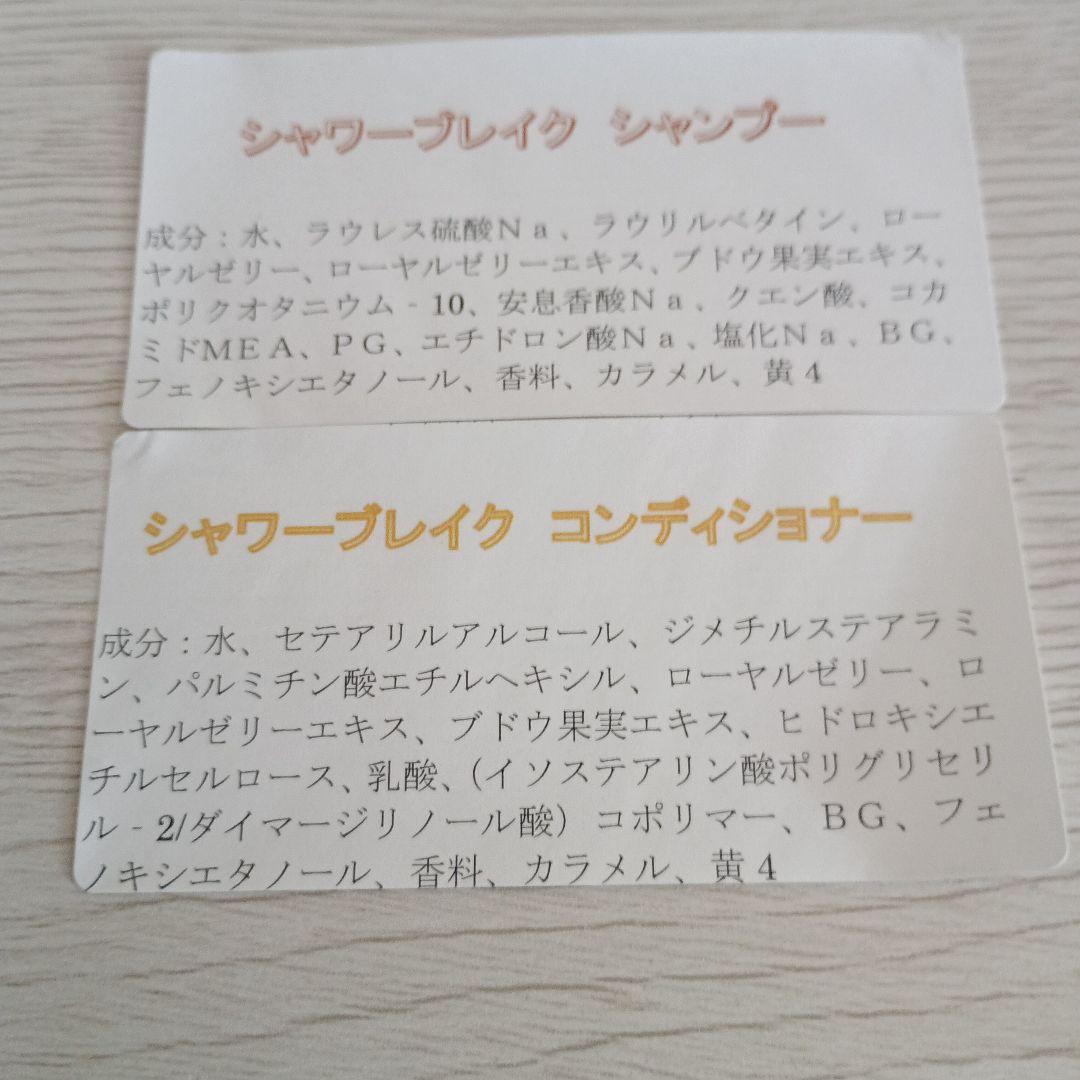 シャワーブレイク シャンプー
成分：水、ラウレス硫酸Ｎａ、ラウリルベタイン、ロー
ヤルゼリー、ローヤルゼリーエキス、ブドウ果実エキス、
ポリクオタニウム‐10、安息香酸Ｎａ、クエン酸、コカ
ミドMEA、PG、エチドロン酸Ｎａ、塩化Ｎａ、BG、
フェノキシエタノール、香料、カラメル、黄4
シャワーブレイク コンディショナー
成分：水、セテアリルアルコール、ジメチルステアラミ
ン、パルミチン酸エチルヘキシル、ローヤルゼリー、ロ
ーヤルゼリーエキス、ブドウ果実エキス、ヒドロキシエ
チルセルロース、乳酸、（イソステアリン酸ポリグリセリ
ル‐2/ダイマージリノール酸）コポリマー、BG、フェ
ノキシエタノール、香料、カラメル、黄4